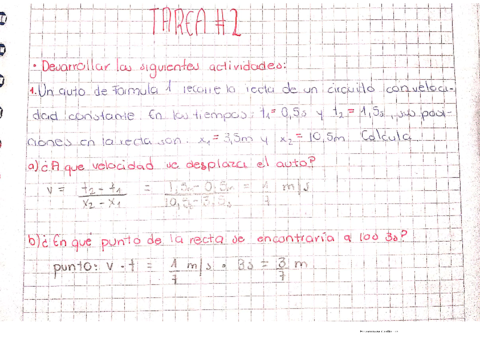 TAREA #2
• Desarrollar las siguientes actividades:
1. Un auto de formula 1 recorre la recta de un circuito con veloci-
dad constante. En los tiempos: t₁ = 0,5s y t₂ = 1,5s, sus posi-
ciones en la recta son: x₁ = 3,5m y x₂ = 10,5m. Calcula
a) ¿A que velocidad se desplaza el auto?
v = t₂ - t₁ / x₂ - x₁ = 1,5 - 0,5 / 10,5 - 3,5 = 1/7 m/s
b) ¿En qué punto de la recta se encontraría a los 3s?
punto: v - t = 1/7 m/s • 3s = 3/7 m